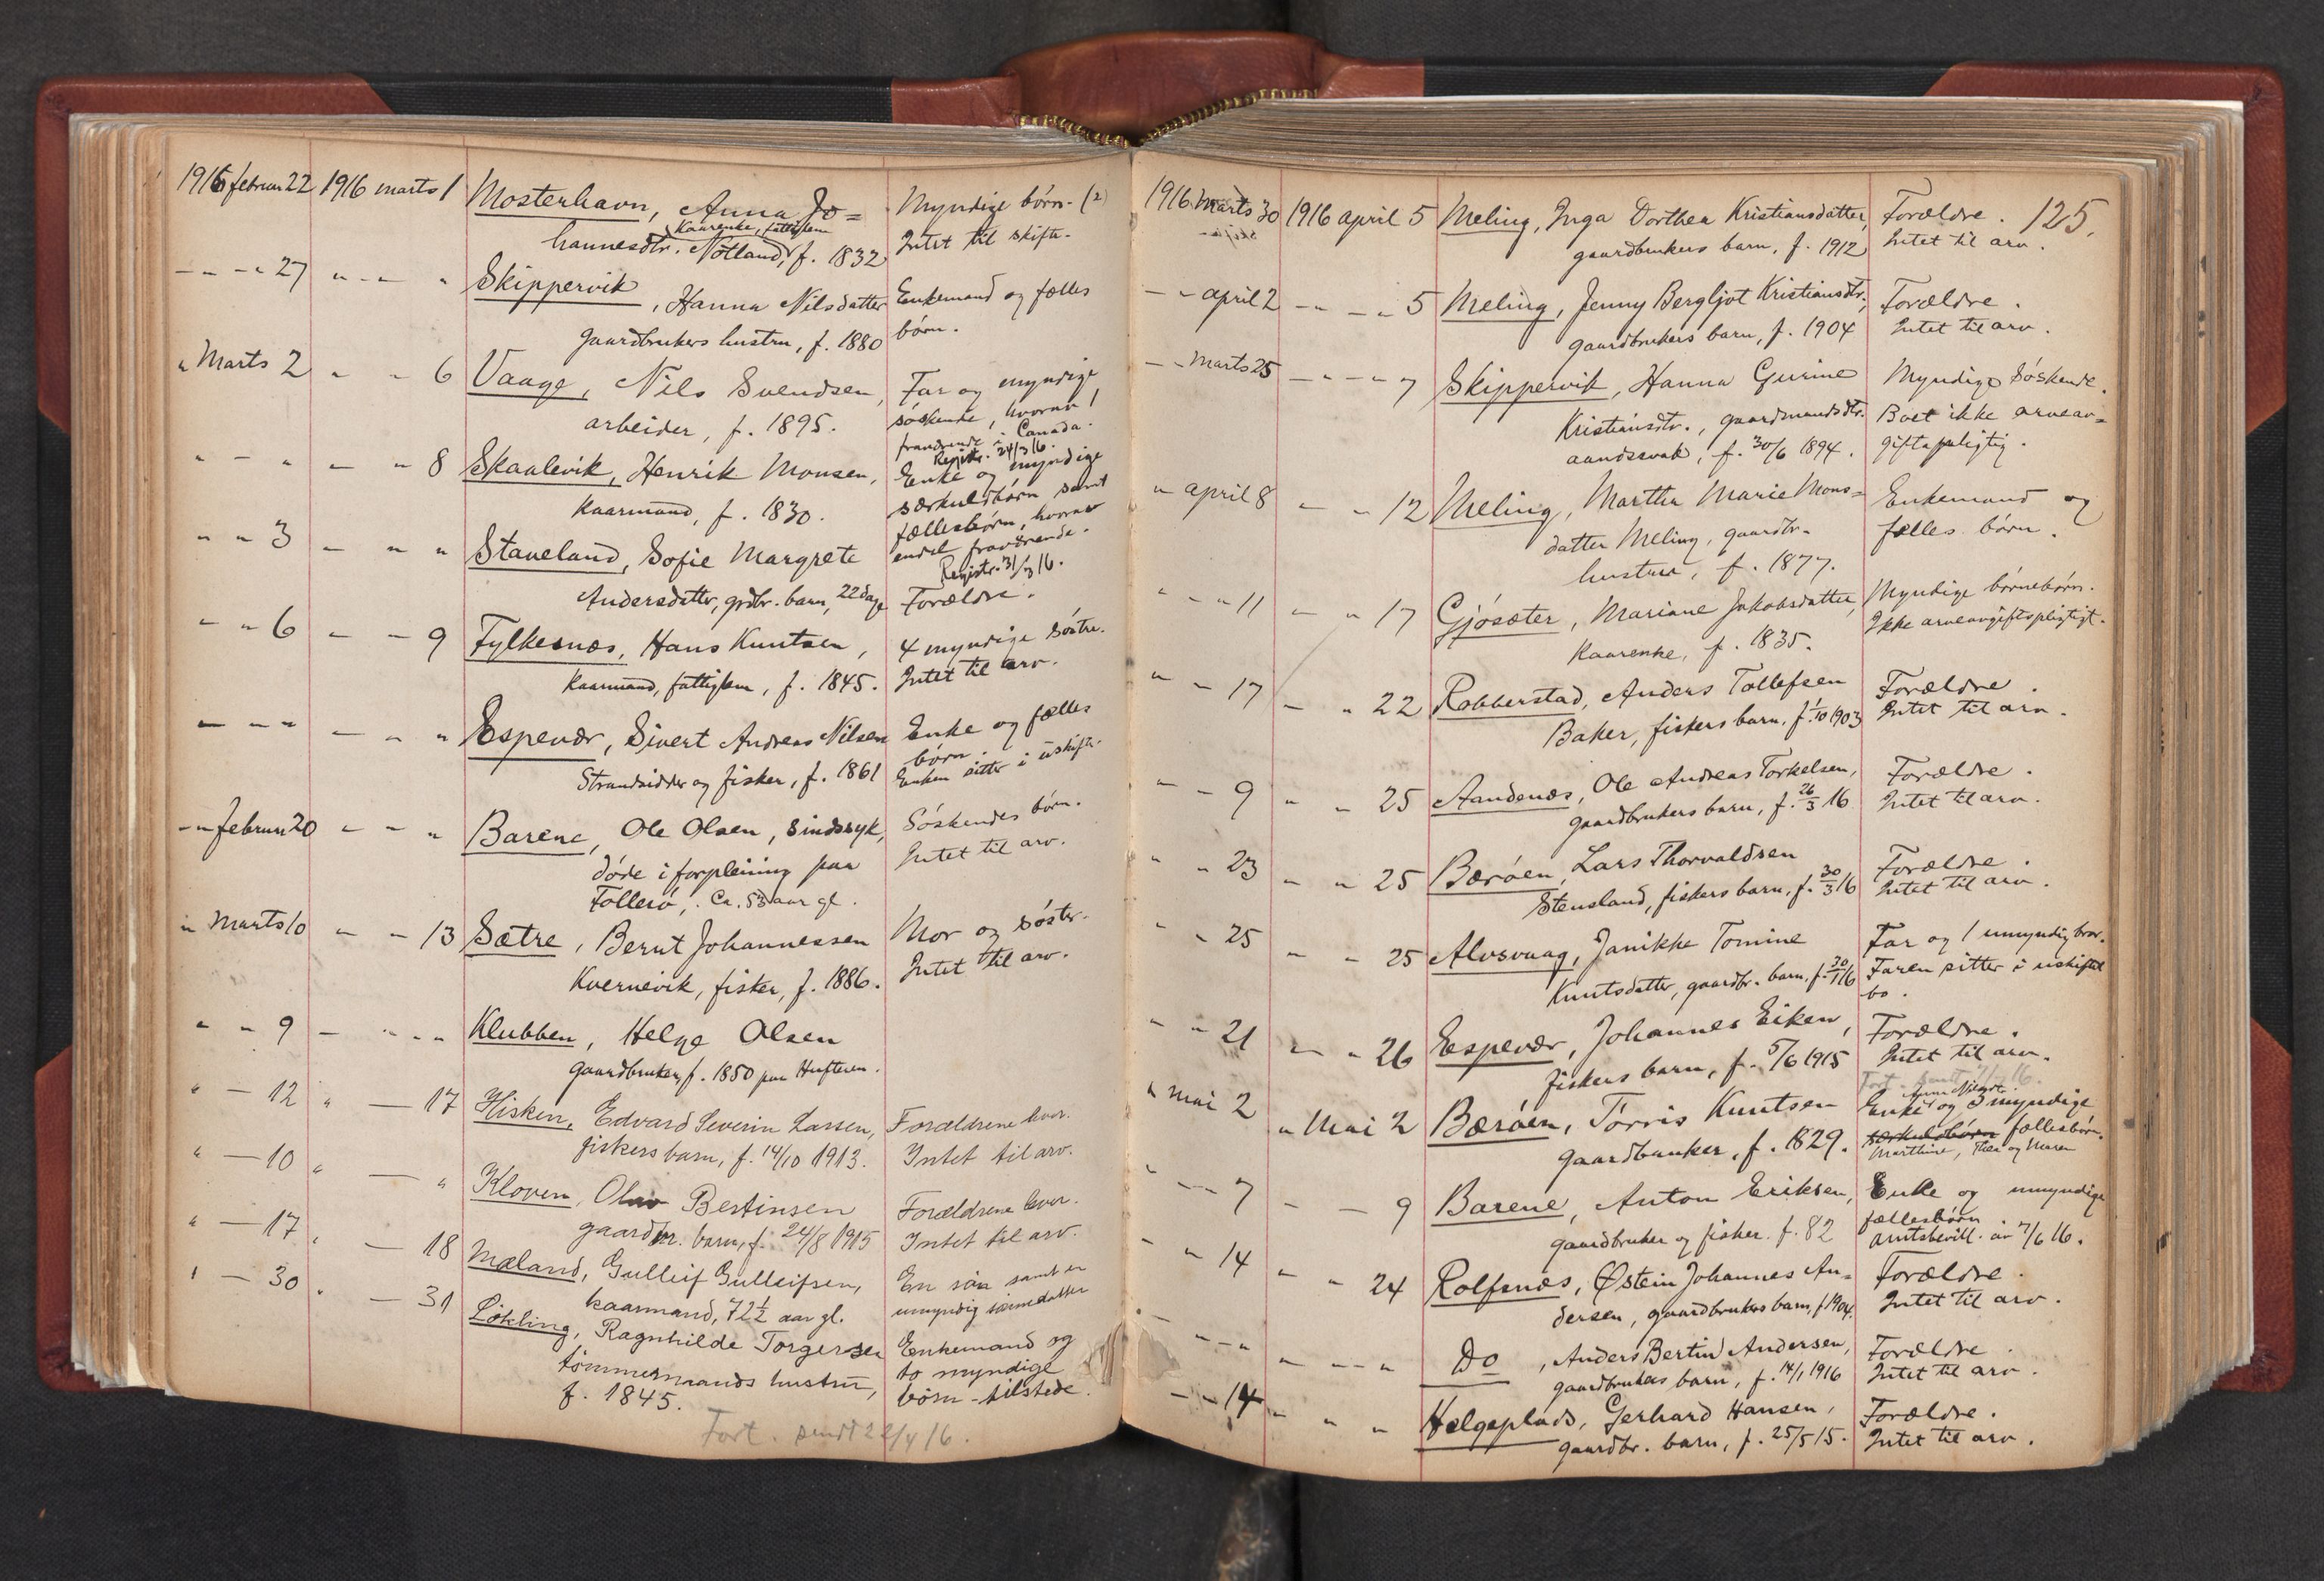 1916 februar 22 1916 marts 1 Mosterhavn, Anna Jo= Myndige børn - (2)
Kaarenke, fattiglem
hannesdtr. Notland, f. 1832 Intet til skifte.
— „ — „ 27 „ — „ — „ Skippervik, Hanna Nilsdatter Enkemand og fælles
gaardbrukers hustru, f. 1880 børn.
„ Marts 2 „ — „ 6 Vaage, Nils Svendsen, Far og myndige
arbeider, f. 1895. søskende, hvorav 1
fraværende i Canada.
Registr. 24/3 16.
„ — „ — „ 8 Skaalevik, Henrik Monsen, Enke og myndige
kaarmand, f. 1830. særkuldbørn samt
fællesbørn, hvorav
endel fraværende.
Registr. 31/3 16.
„ „ 3 — „ „ Staveland, Sofie Margrete
Andersdatter, grdbr. barn, 22 dage Forældre.
„ „ 6 — — 9 Fylkesnæs, Hans Knutsen, 4 myndige søstre.
kaarmand, fattiglem, f. 1845. Intet til arv.
— „ — „ — „ „ Espevær, Sivert Andreas Nilsen Enke og fælles
børn.
Strandsidder og fisker, f. 1861 Enken sitter i uskifte.
— „ februar 20 „ — „ Barene, Ole Olsen, sindssyk, Søskendes børn.
døde i forpleining paa Intet til arv.
Follesø, Ca. 53 aar gl.
„ Marts 10 „ — 13 Sætre, Bernt Johannessen Mor og søster.
Kvernevik, fisker, f. 1886. Intet til arv.
„ „ 9 — „ „ „ Klubben, Helge Olsen
gaardbruker, f. 1850 paa Hufteren.
„ — 12 „ — 17 Hisken, Edvard Severin Larsen, Forældrene lever.
fiskers barn, f. 14/10 1913. Intet til arv.
„ — 10 „ — „ Kloven, Olav Bertinsen Forældrene lever.
gaardbr. barn, f. 24/8 1915 Intet til arv.
„ — 17 „ — 18 Mæland, Gulleif Gulleifsen, En søn samt en
kaarmand, 72½ aar gl. umyndig sønnedatter
„ — 30 „ — 31 Løkling, Ragnhilde Torgersen Enkemand og
tømmermands hustru, to myndige
f. 1845. børn - tilstede.
Fort. sendt 22/4 16.
125.
1916 Marts 30 1916 april 5 Meling, Inga Dorthea Kristiansdatter, Forældre.
gaardbrukers barn, f. 1912 Intet til arv.
— „ april 2 — „ — „ 5 Meling, Jenny Bergljot Kristiansdtr., Forældre.
gaardbrukers barn, f. 1904 Intet til arv.
— „ Marts 25 — „ — „ 7 Skippervik, Hanna Gurine Myndige søskende.
Kristiansdtr., gaardmandsdtr. Boet ikke arveav=
aandssvak, f. 30/6 1894. giftspligtig.
„ april 8 — „ 12 Meling, Martha Marie Mons= Enkemand og
datter Meling, gaardbr. fælles børn.
hustru, f. 1877.
„ „ „ 11 — „ 17 Gjøsæter, Mariane Jakobsdatter, Myndige børnebørn.
kaarenke, f. 1835. Ikke arveavgiftspligtigt.
„ — 17 — „ 22 Robberstad, Anders Tollefsen Forældre.
Baker, fiskers barn, f. 1/10 1903 Intet til arv.
„ — 9 „ „ 25 Aandenæs, Ole Andreas Torkelsen, Forældre.
gaardbrukers barn, f. 26/3 16 Intet til arv.
„ — 23 — „ 25 Børøen, Lars Thorvaldsen Forældre.
Stensland, fiskers barn, f. 30/3 16 Intet til arv.
„ „ 25 — „ 25 Alvsvaag, Janikke Tomine Far og 1 umyndig bror.
Knutsdatter, gaardbr. barn, f. 30/1 16 Faren sitter i uskiftet
bo.
„ — „ 21 — „ 26 Espevær, Johannes Eiken, Forældre.
fiskers barn, f. 5/6 1915 Intet til arv.
„ Mai 2 „ Mai 2 Børøen, Tørris Knutsen Enke og 3 myndige
gaardbruker, f. 1829. særkuldsbørn fællesbørn.
Marthine, Thea og Maren
„ — „ 7 — — 9 Barene, Anton Eriksen, Enke og umyndige
fællesbørn
gaardbruker og fisker. f. 82 Amtsbevill. av 7/6 16.
„ „ 14 — „ 24 Rolfsnæs, Østein Johannes An= Forældre.
dersen, gaardbrukers barn, f. 1904. Intet til arv.
„ — „ — „ „ — „ — „ Do, Anders Bertin Andersen, Forældre
gaardbrukers barn, f. 14/1 1916 Intet til arv.
— „ 14 „ „ „ Helgeplads, Gerhard Hansen, Forældre.
gaardbr. barn, f. 25/5 15. Intet til arv.